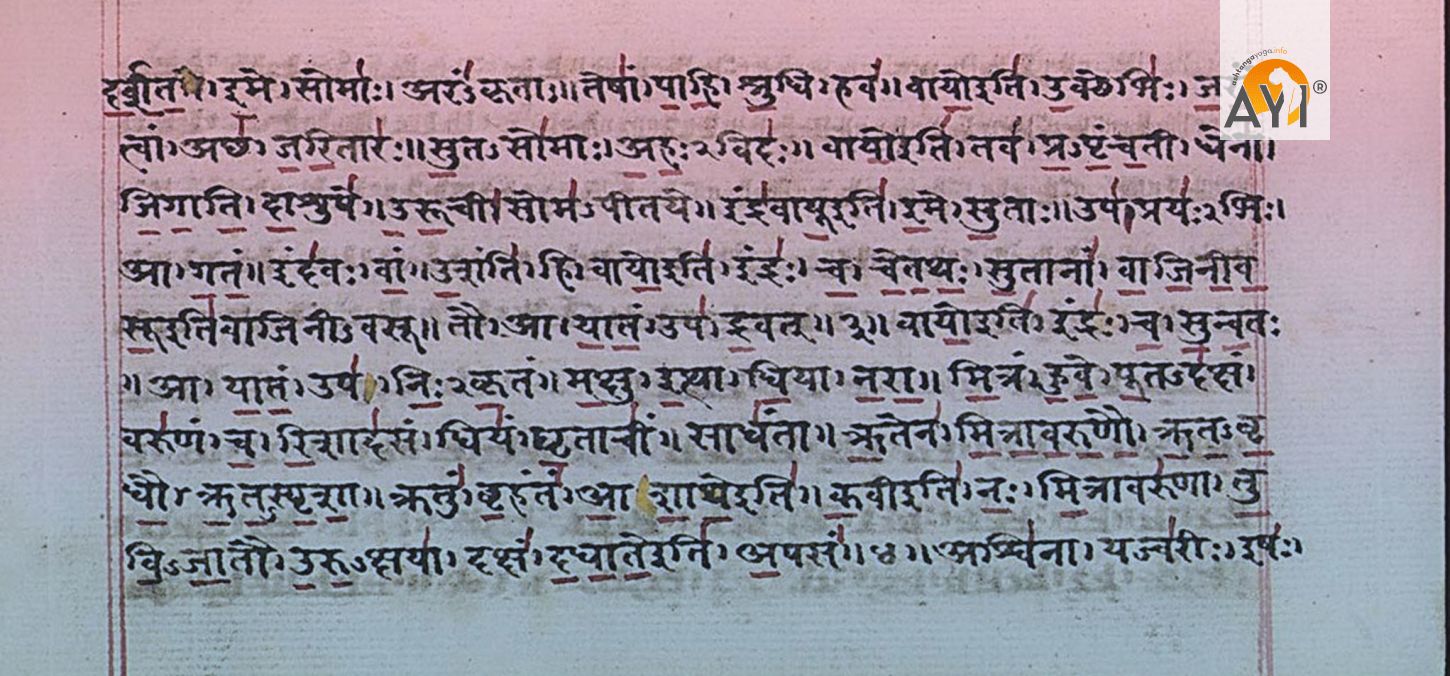 दर्शत । इमे । सोमाः । अरंऽकृताः ॥ तेषां । पाहि । श्रुधि । हवं ॥ वायोइति । उक्थेभिः । ज
त्वां । अच्छ । जरितारः ॥ सुतऽसोमाः । अहःऽविदः ॥ वायोइति । तव । प्रऽपृंचती । धेना ।
जिगाति । दाशुषे ॥ उरूची । सोमऽपीतये ॥ इंद्रवायूइति । इमे । सुताः ॥ उप । प्रयःऽभिः ।
आ । गतं ॥ इंदवः । वां ॥ उशंति । हि । वायोइति । इंद्रः । च । चेतथः । सुतानां । वाजिनीव
सूइतिवाजिनीऽवसू ॥ तौ । आ । यातं । उप । द्रवत् ॥ ३ ॥ वायोइति । इंद्रः । च । सुन्वतः
॥ आ । यातं । उप । निःऽकृतं ॥ मक्षु । इत्था । धिया । नरा ॥ मित्रं । हुवे । पूतऽदक्षं ।
वरुणं । च । रिशादसं । धियं । घृताचीं । साधंता ॥ ऋतेन । मित्रावरुणौ । ऋतऽवृ
धौ । ऋतऽस्पृशा ॥ क्रतुं । बृहंतं । आशाथेइति ॥ कवीइति । नः । मित्रावरुणा । तु
विऽजातौ । उरुऽक्षया । दक्षं । दधातेइति । अपसं ॥ ४ ॥ अश्विना । यज्वरीः । इषः ।
ashtangayoga.info
AYI®